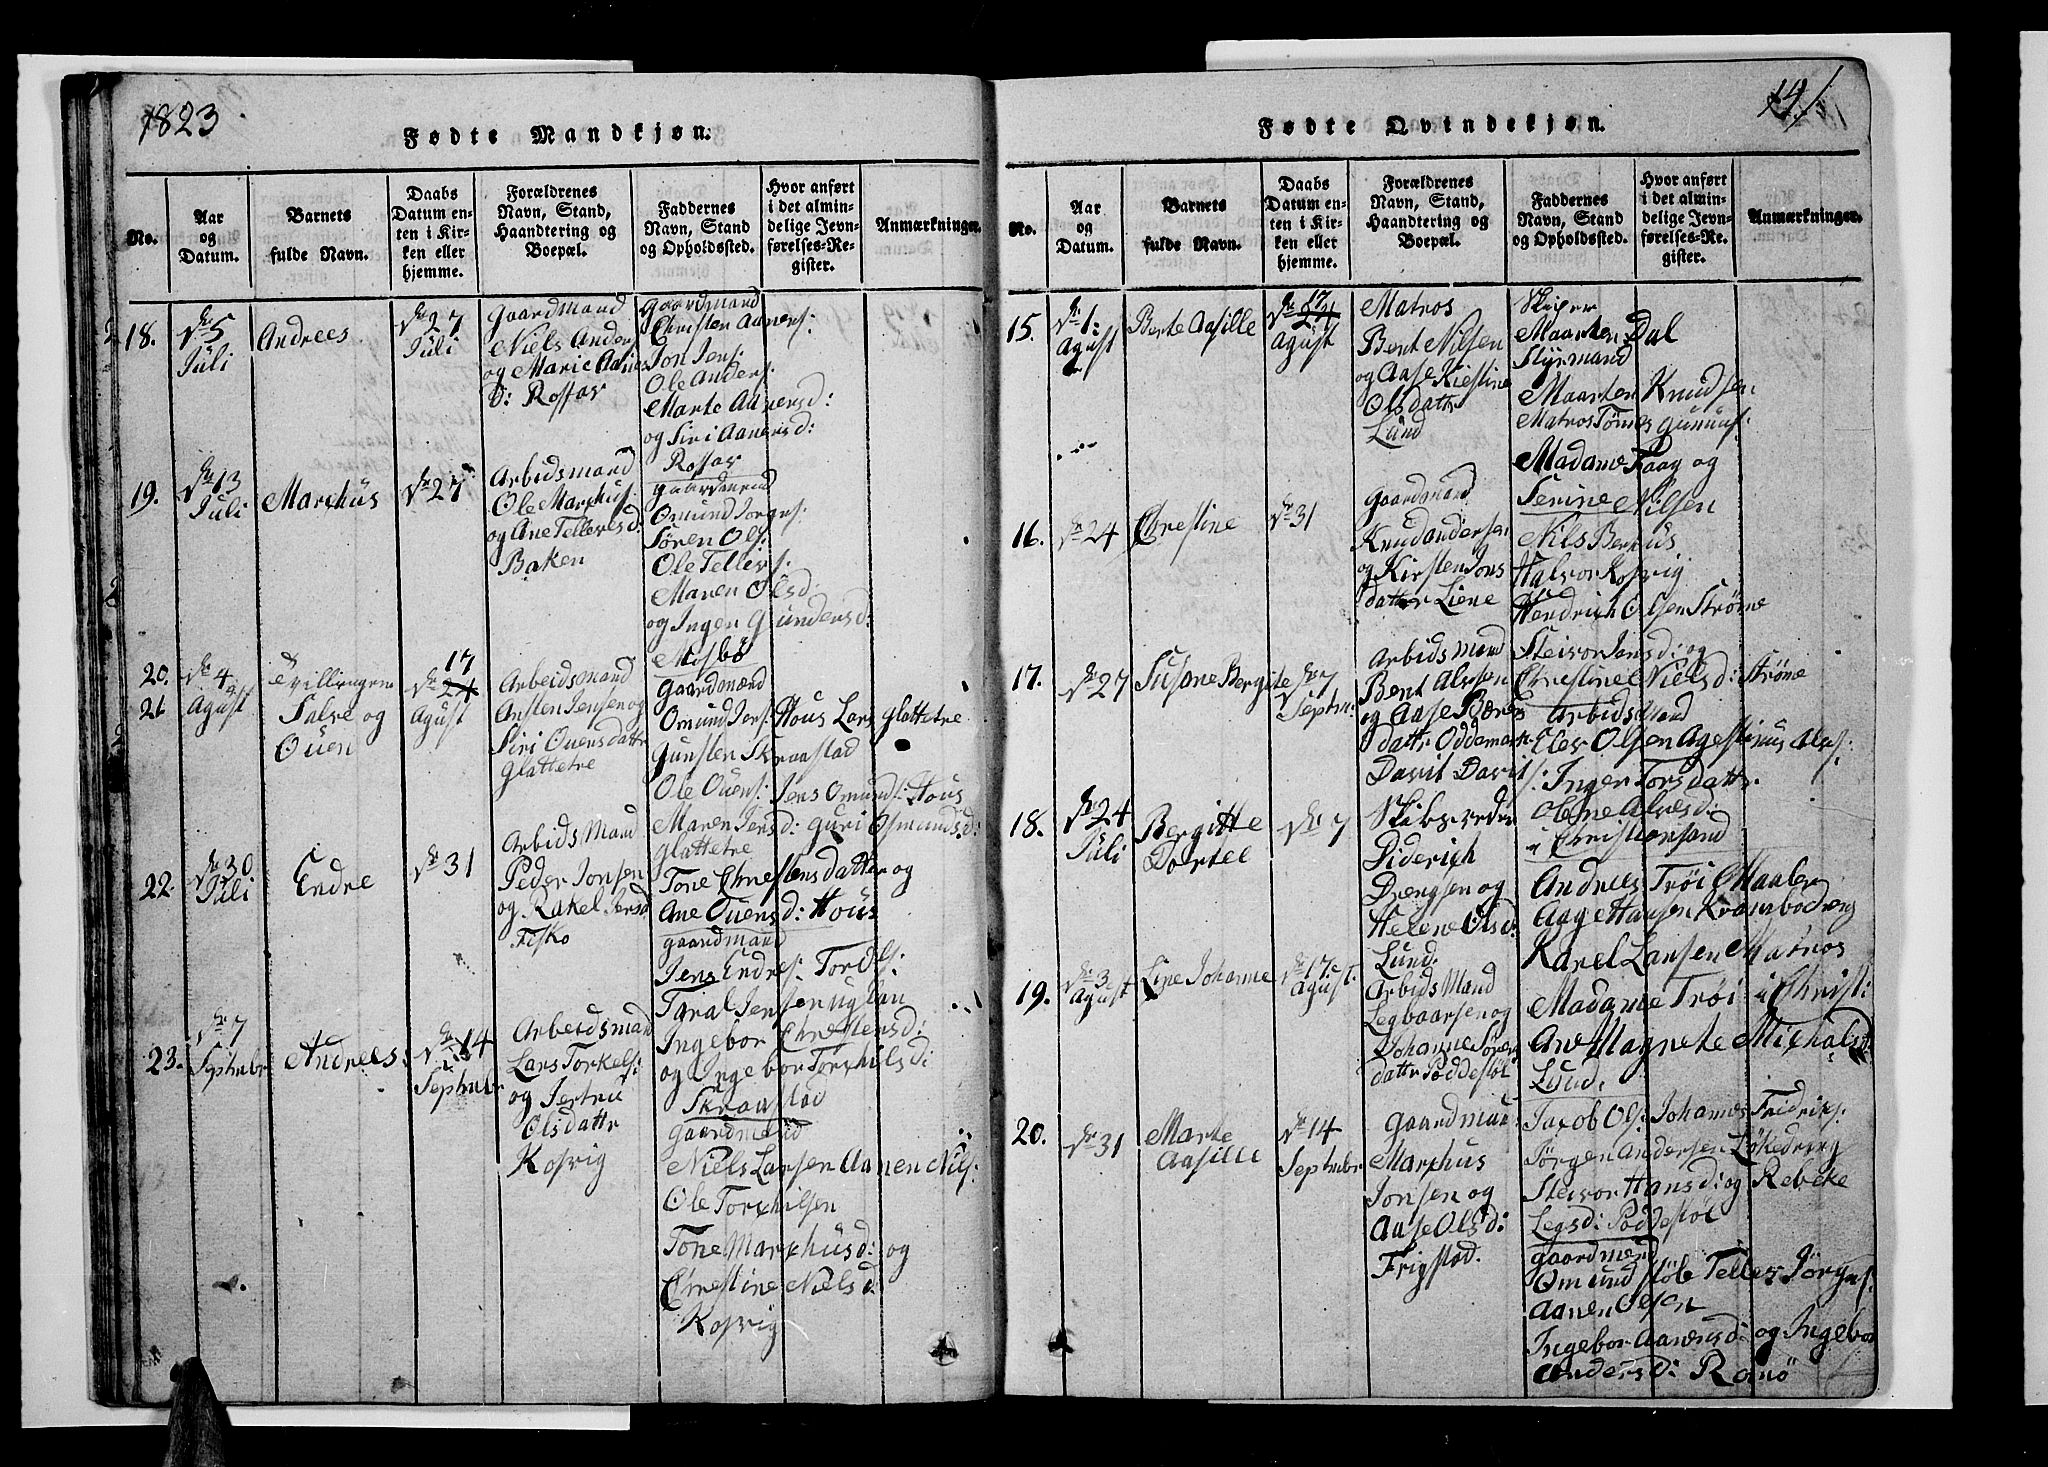 1823
Fødte Mandkjøn.
No.
Aar
og
Datum.
Barnets
fulde Navn.
Daabs
Datum en-
ten i Kir-
ken eller
hjemme.
Forældrenes
Navn, Stand,
Haandtering og
Boepæl.
Faddernes
Navn, Stand
og Opholdssted.
Hvor anført
i det almin-
delige Jevn-
førelses-Re-
gister.
Anmærkninger.
18.
5
Juli
Andrees
27
Juli
Gaardmand
Niels Anders:
og Marie Aanes
d: Rossaas
Gaardmand
Christen Aanens:
Jon Jens:
Ole Anders:
Marte Aanensd:
og Siri Aanensd:
Rossaas
19.
13
Juli
Marchus
27
Arbidsmand
Ole Marchus:
og Ane Tellevsd:
Baken
Gaardmend
Omund Jorgns:
Sören Ols:
Ole Tellivs:
Maren Olsd:
og Ingen Gundersd:
Mosbö
20.
21
4
Agust
Tvillingerne
Salve og
Ouen
17
24
Agust
Arbeidsmand
Ansten Jensen og
Siri Ouensdattr
Glattetre
Gaardmænd
Omund Jens: Hous Lars Glattetre
Gunsten Skraastad
Ole Ouens: Jens Omunds: Hous
Maren Jensd: Guri Osmundsd:
Glattetre
22.
30
Juli
Endre
31
Arbids Mand
Peder Jonsen
og Rakel Jersd
Fisko
Tone Chrestensdatter og
Ane Ouensd: Hous
Gaardmand
Jens Endres: Tor Ols:
Taral Jensen uglan
Ingebor Chrestensd:
og Ingebor Torchilsd:
Skraastad
23.
7
Septmbr
Andrees
14
Septmbr
Arbeidsmand
Lars Torkels:
og Jertru
Olsdattr
Kosvig
Gaardmend
Niels Larsen Aanen Nils:
Ole Torchilsen
Tone Marchusd: og
Chrestine Nielsd:
Kosvig
141
Fødte Qvindekjøn.
No.
Aar
og
Datum.
Barnets
fulde Navn.
Daabs
Datum en-
ten i Kir-
ken eller
hjemme.
Forældrenes
Navn, Stand,
Haandtering og
Boepæl.
Faddernes
Navn, Stand
og Opholdssted.
Hvor anført
i det almin-
delige Jevn-
førelses-Re-
gister.
Anmærkninger.
15.
1:
Agust
Berte Aasille
17
24
Agust
Matros
Bent Nilsen
og Aase Kiestine
Olsdattr
Lund
Skiper
Maarten Dal
Styrmand
Maarten Knudsen
Matros Tönnes Gunnus:
Madame Faag og
Serine Nilsen
16.
24
Chrestine
31
Gaardmand
Knud andersen
og Kirsten Jons
dattr Liene
Nils Berhus
Halvor Kosvig
Hendrich Olsen Ströme
Steivor Jansd: og
Chrestine Nielsd: Ströme
17.
27
Susane Bergite
7
Septmr
Arbidsmand
Bent Alvsen
og Aase Bærens
dattr Oddemark
Arbids Mand
Elev Olsen Agestinus Alvs:
Davit Davits: Inger Torsdattr.
Olene Alvesd:
i Christiansand
18.
24
Juli
Bergitte
Dortee
7
Skibsreder
Diderich
Drengsen og
Helene Olsd:
Lund:
Andrees Tröi Maaler
Aage Hansen Krambodreng
Karel Larsen Matros
Madame Tröi i Christ:
Ane Magnete Michalsd
Lund.
19.
3
Agust
Line Johanne
17
Agust.
Arbids Mand
Leg baarsen og
Johanne Sörens
dattr Poddestöl
Jacob Ols: Johanes Fridriks:
Jörgen Andersen Lökedreng
Steivor Hansd: og Rebeke
Legsd: Poddestöl
20.
31
Marte
Aasille
14
Septmbr
Gaardman:
Marchus
Jonsen og
Aase Olsd:
Frigstad.
Gaardmend
Omund Stöle Tellev Jörgns:
Aanen Olsen
Ingebor Aanensd: og Ingebor
Andersd: Ronö